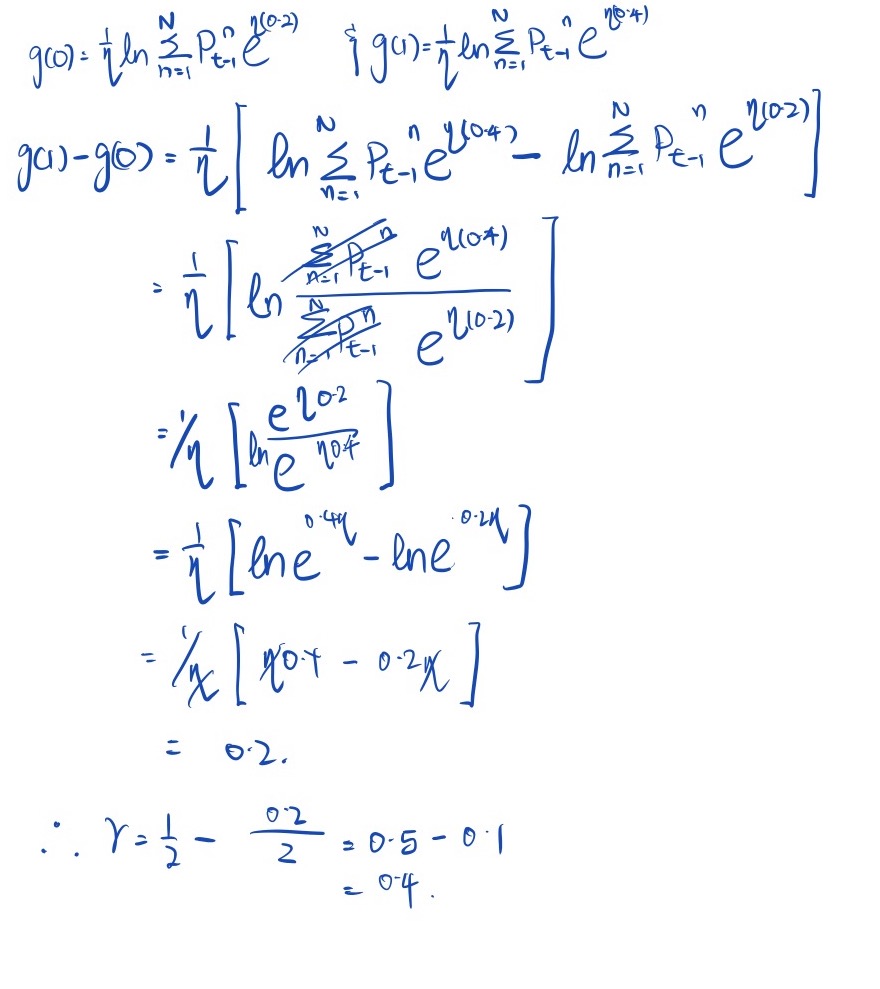 g(0) = 1/η ln Σ_{n=1}^{N} P_{t-1}^{n} e^{η(0.2)} & g(1) = 1/η ln Σ_{n=1}^{N} P_{t-1}^{n} e^{η(0.4)}
g(1) - g(0) = 1/η [ ln Σ_{n=1}^{N} P_{t-1}^{n} e^{η(0.4)} - ln Σ_{n=1}^{N} P_{t-1}^{n} e^{η(0.2)} ]
= 1/η [ ln (Σ_{n=1}^{N} P_{t-1}^{n} e^{η(0.4)}) / (Σ_{n=1}^{N} P_{t-1}^{n} e^{η(0.2)}) ]
= 1/η [ ln e^{η0.2} / e^{η0.4} ]
= 1/η [ ln e^{0.4η} - ln e^{0.2η} ]
= 1/η [ η0.4 - 0.2η ]
= 0.2.
∴ r = 1/2 - 0.2/2 = 0.5 - 0.1
= 0.4.